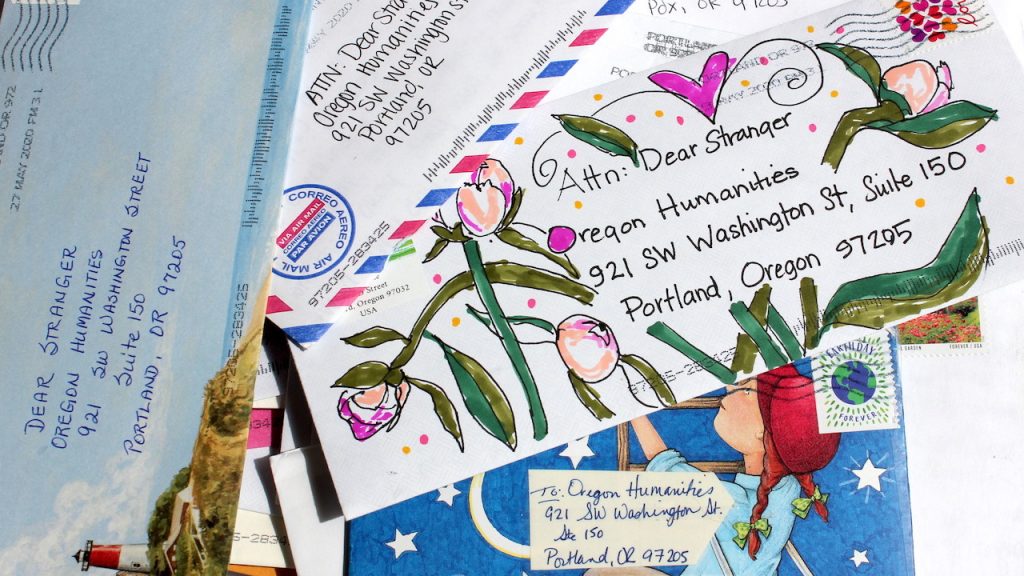 27 MAY 2020 PM 3 L
DEAR STRANGER
OREGON HUMANITIES
921 SW WASHINGTON STREET
SUITE 150
PORTLAND, OR 97205
ATTN: Dear
Oregon Humanities
921 SW Washington St
Portland, OR
97205
CORREO AEREO
VIA AIR MAIL
CORREO AEREO
PAR AVION
AIR MAIL
97205-283425
Street
d, Oregon 97032
USA
PDX, OR 97205
PORTLAND
OR 972
Attn: Dear Stranger
Oregon Humanities
921 SW Washington St, Suite 150
Portland, Oregon 97205
97205-2834
EARTH DAY
FOREVER
GARDEN FOREVER / USA
To: Oregon Humanities
921 SW Washington St.
Ste 150
Portland, OR 97205